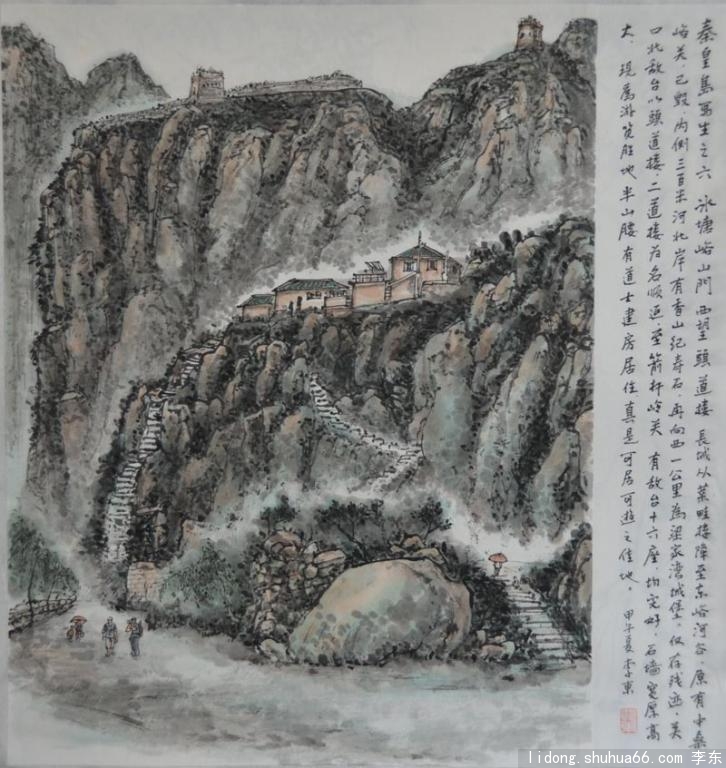 秦皇島写生之六 冰塘峪山門西望頭道楼 長城从葦畦接障至东峪河谷，原有中桑
峪关，已毁，内侧三百米河北岸有香山纪寿石，再向西一公里為梁家湾城堡，仅存残迹，关
口北敌台以頭道楼，二道楼为名順延至箭杆岭关 有敌台十六座均完好，石墙宽厚高
大，现為游览胜地半山腰有道士建房居住真是可居可遊之佳地。甲午夏李東
lidong.shuhua66.com 李东